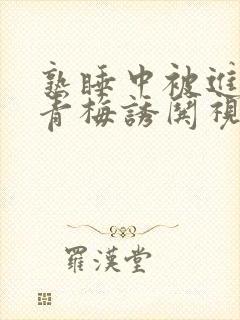 熟睡中被進
青梅誘関視
羅漢堂